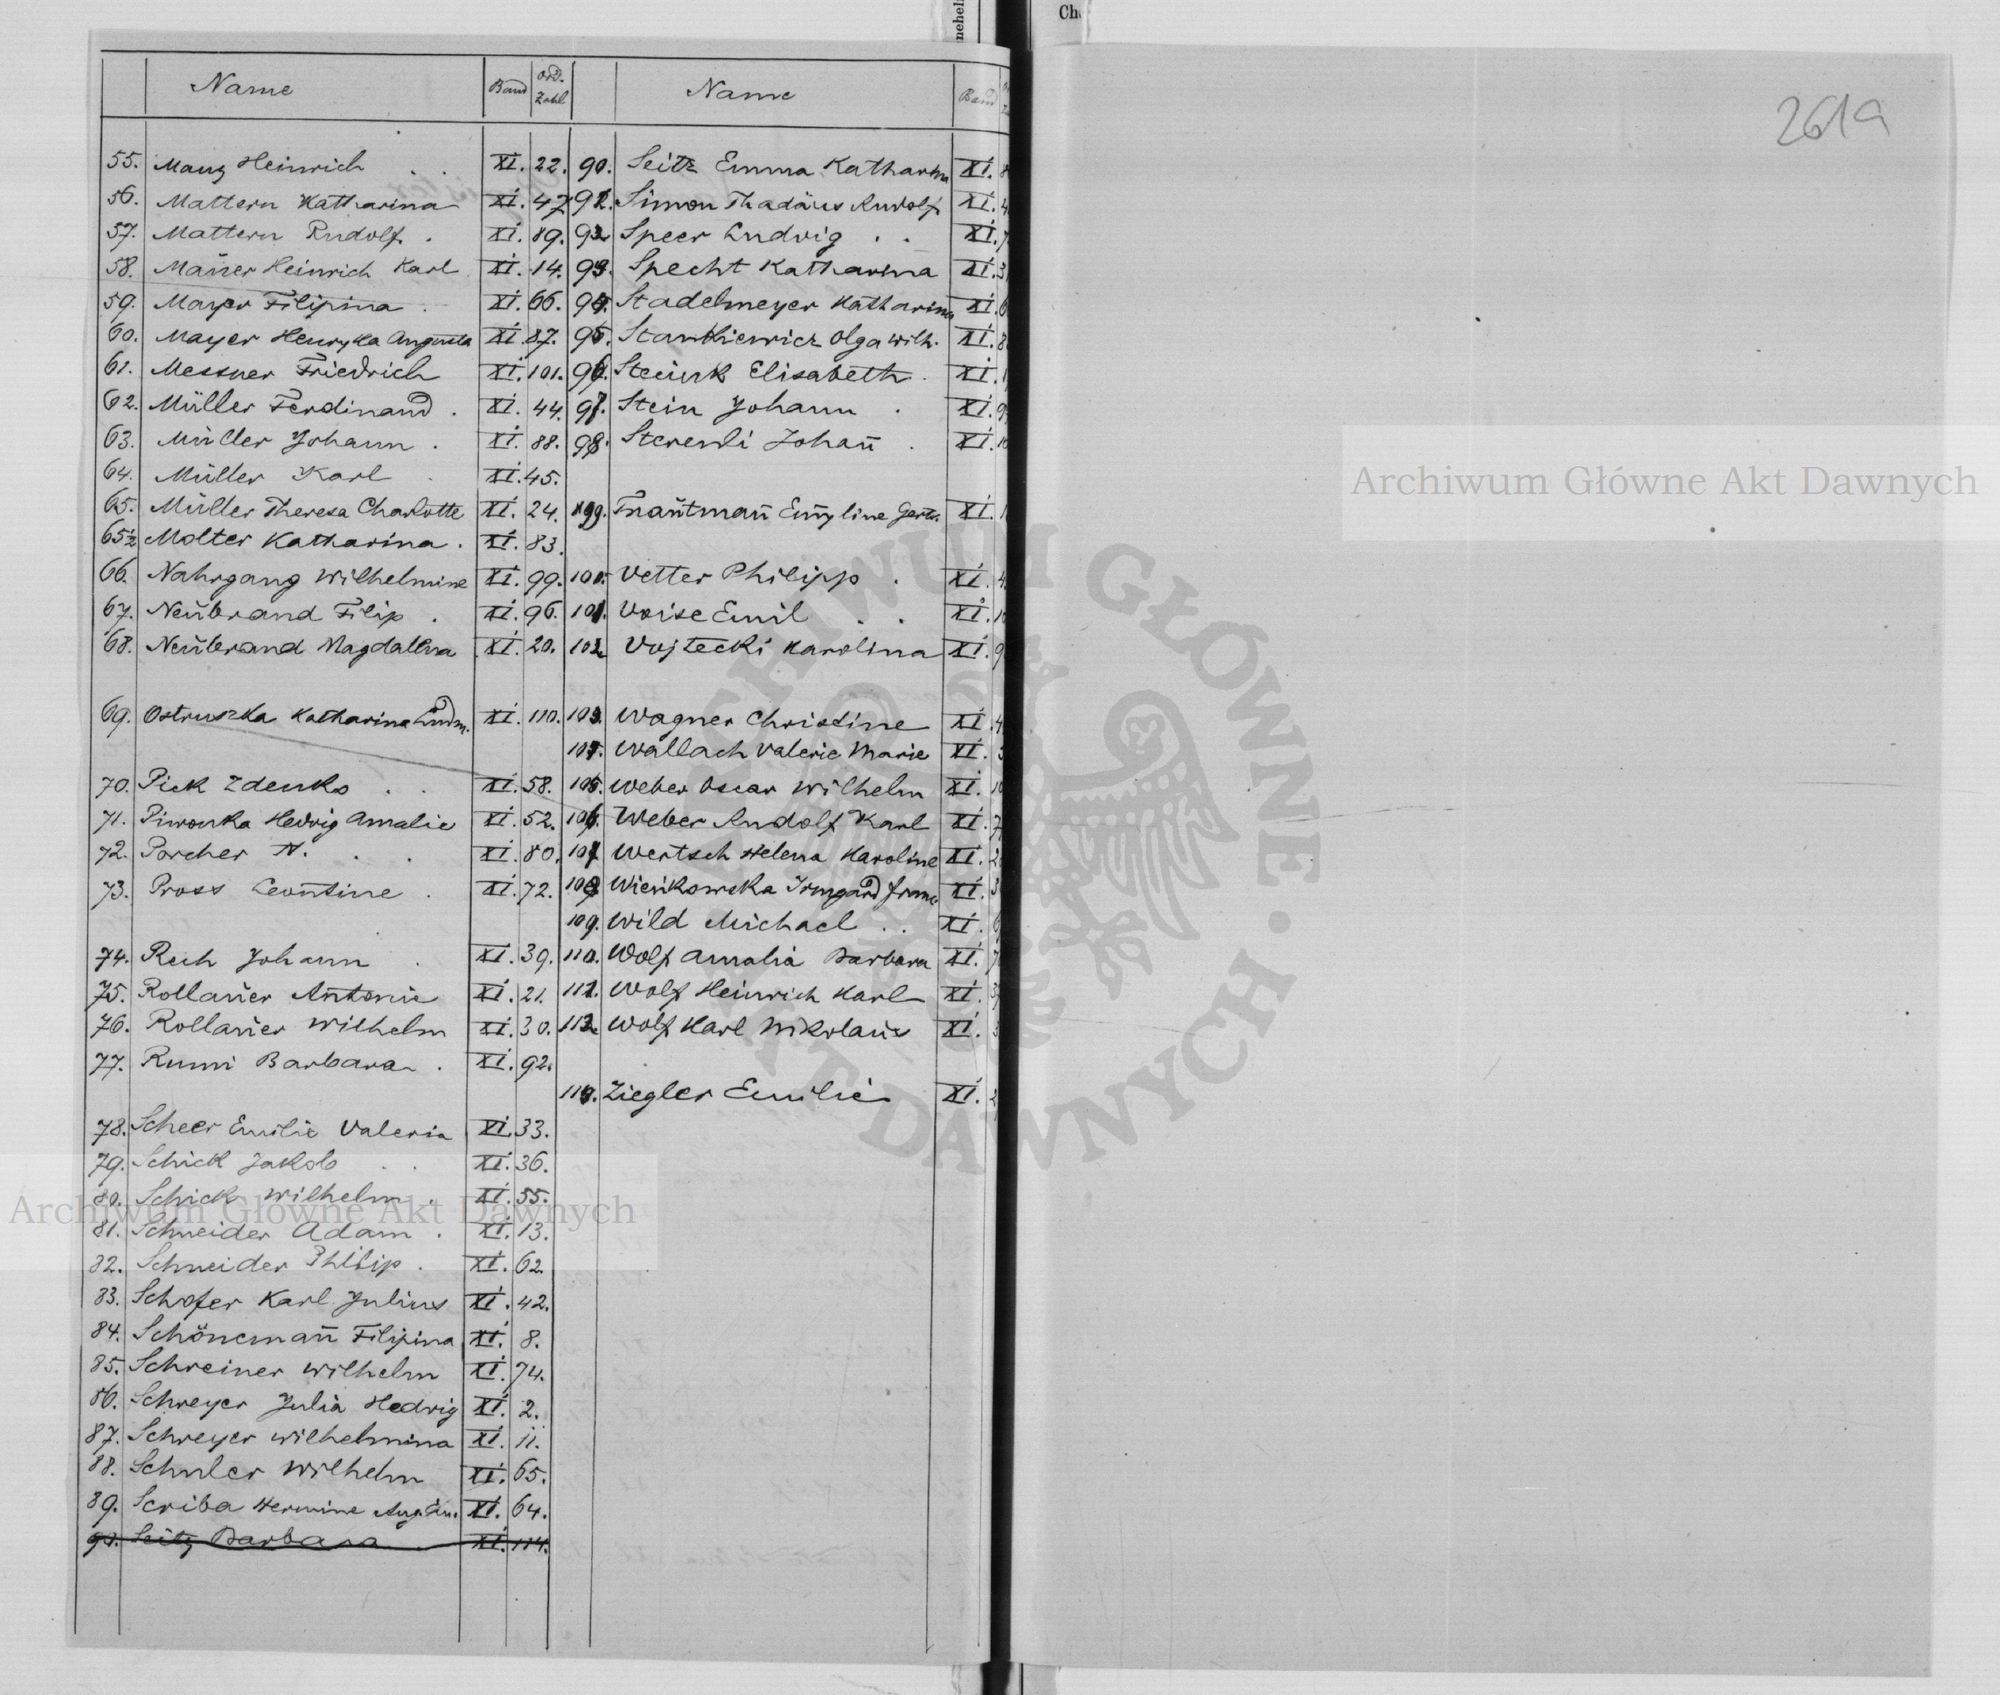 Name Band Ord. Zahl
55. Manz Heinrich . . XI. 22.
56. Mattern Katharina XI. 47
57. Mattern Rudolf . XI. 89.
58. Maurer Heinrich Karl XI. 14.
59. Mayer Filipina . XI. 66.
60. Mayer Henryka Augusta XI. 87.
61. Messner Friedrich XI. 101.
62. Müller Ferdinand . XI. 44.
63. Müller Johann . XI. 88.
64. Müller Karl . XI. 45.
65. Müller Theresa Charlotte XI. 24.
65½ Molter Katharina . XI. 83.
66. Nahrgang Wilhelmine XI. 99.
67. Neŭbrand Filip . XI. 96.
68. Neŭbrand Magdalena XI. 20.
69. Ostruszka Katharina Ludm. XI. 110.
70. Pick Zdenko . . XI. 58.
71. Piwonka Hedwig Amalie XI. 52.
72. Porcher N. . . XI. 80.
73. Pross Leontine . XI. 72.
74. Rech Johann . XI. 39.
75. Rollaŭer Antonie XI. 21.
76. Rollaŭer Wilhelm XI. 30.
77. Rumi Barbara . XI. 92.
78. Scheer Emilie Valeria XI. 33.
79. Schick Jakob . . XI. 36.
80. Schick Wilhelm . XI. 55.
81. Schneider Adam . XI. 13.
82. Schneider Philip . XI. 62.
83. Schofer Karl Julius XI. 42.
84. Schönemañ Filipina XI. 8.
85. Schreiner Wilhelm XI. 74.
86. Schreyer Julia Hedwig XI. 2.
87. Schreyer Wilhelmina XI. 11.
88. Schuler Wilhelm XI. 65.
89. Scriba Hermine Aug. XI. 64.
90. Seitz Barbara . XI. 114.
Name Band
90. Seitz Emma Katharina XI.
91. Simon Thadäus Rudolf XI.
92. Speer Ludwig . . XI.
93. Specht Katharina XI.
94. Stadelmeyer Katharina XI.
95. Stankiewicz Olga Wilh. XI.
96. Steink Elisabeth . XI.
97. Stein Johann . XI.
98. Sterenli Johañ . XI.
99. Traŭtmañ Emyline Gertr. XI.
100. Vetter Philipp . XI.
101. Voise Emil . . XI.
102. Vojtecki Karolina XI.
103. Wagner Christine XI.
104. Wallach Valerie Marie XI.
105. Weber Oscar Wilhelm XI.
106. Weber Rudolf Karl XI.
107. Wertsch Helena Karoline XI.
108. Wieńkowska Irmgard XI.
109. Wild Michael . . XI.
110. Wolf Amalia Barbara XI.
111. Wolf Heinrich Karl XI.
112. Wolf Karl Nikolaŭs XI.
113. Ziegler Emilie XI.
261a
Archiwum Główne Akt Dawnych
Archiwum Główne Akt Dawnych
ARCHIWUM GŁÓWNE · AKT DAWNYCH ·